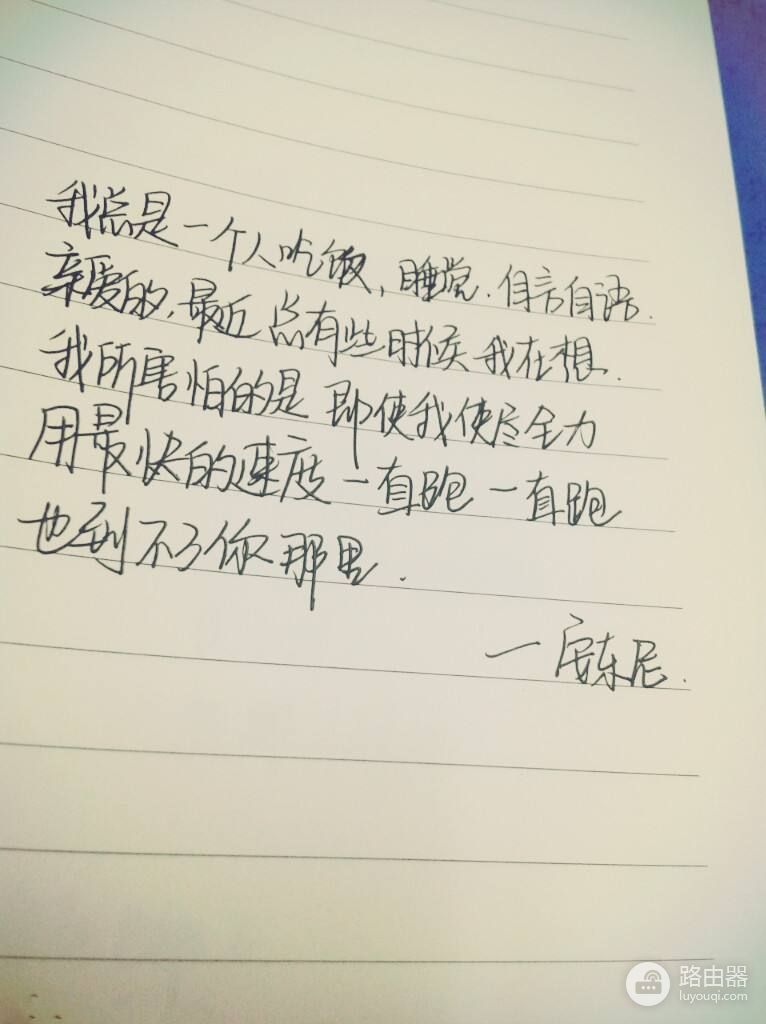 我总是一个人吃饭,睡觉.自言自语.
亲爱的,最近总有些时候我在想.
我所害怕的是即使我使尽全力
用最快的速度一直跑一直跑
也到不了你那里.
—安东尼.
路由器
luyouqi.com